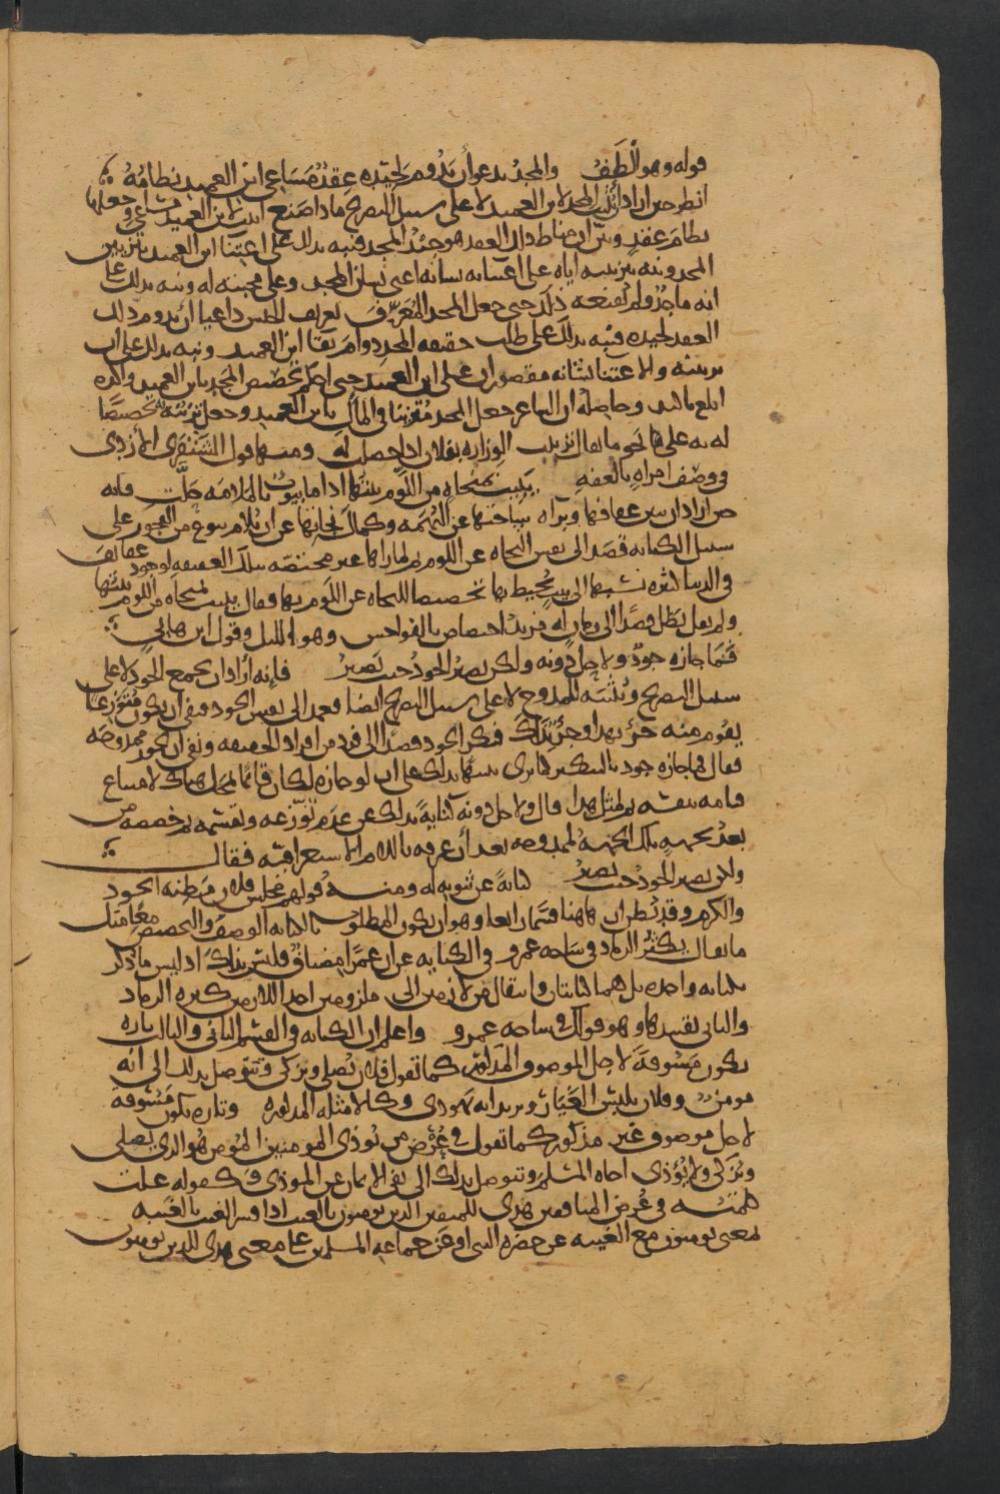 قوله وهو ألطف والمجد يدعو أن يدوم لجيده عقد مساعي ابن العميد نظامه
انظر حين أراد أن يثبت المجد لابن العميد لا على سبيل التصريح ماذا صنع أثبت لابن العميد مساعي وجعلها
نظام عقد وبين أن مناط ذلك العقد هو جيد المجد فنبه بذلك على اعتناء ابن العميد بتزيين
المجد ونبه بتزيينه إياه على اعتنائه بشأنه أعني بشأن المجد وعلى محبته له ونبه بذلك على
أنه ماجد ولم يقنعه ذلك حتى جعل المجد المعرف تعريف الجنس داعيا أن يدوم ذلك
العقد لجيده فنبه بذلك على طلب حقيقة المجد دوام بقاء ابن العميد ونبه بذلك على أن
تزيينه والاعتناء بشأنه مقصوران على ابن العميد حتى أحكم تخصيص المجد بابن العميد وأكده
أبلغ تأكيد وحاصله أن الشاعر جعل المجد متزينا في المآل بابن العميد وجعل تزينه تخصيصا
له به على نحو ما يقال تزينت الوزارة بفلان إذا حصلت له ومنها قول الشنفرى الأزدي
في وصف امرأة بالعفة يبيت بمنجاة من اللوم بيتها إذا ما بيوت بالملامة حلت فإنه
حين أراد أن يبين عفافها وبراءة ساحتها عن التهمة وكمال نجاتها عن أن تلام بنوع من الفجور على
سبيل الكناية قصد إلى نفس النجاة عن اللوم ثم لما رآها غير مختصة بتلك العفيفة لوجود عفائف
في الدنيا كثيرة نسبها إلى بيت يحيط بها تخصيصا للنجاة عن اللوم بها فقال يبيت بمنجاة من اللوم بيتها
ولم يقل يظل قصدا إلى زمان له مزيد اختصاص بالفواحش وهو الليل وقول ابن هانئ
فما جازه جود ولا حل دونه ولكن يصير الجود حيث يصير فإنه أراد أن يجمع الجود لا على
سبيل التصريح ويثبته للممدوح لا على سبيل التصريح أيضا فعمد إلى نفس الجود فنفى أن يكون متوزعا
يقوم منه جزء بهذا وجزء بذاك فنكر الجود قصدا إلى فرد من أفراد الحقيقة ونفى أن يجوز ممدوحه
فقال فما جازه جود بالتنكير كما ترى تنبيها بذلك على أن لو جازه لكان قائما بمحل هناك لامتناع
قيامه بنفسه ثم لمثل هذا قال ولا حل دونه كناية بذلك عن عدم توزعه وتقسمه ثم خصصه من
بعد بجهة تلك الجهة لممدوحه بعد أن عرفه باللام الاستغراقية فقال
ولكن يصير الجود حيث يصير كناية عن ثبوته له ومنه قولهم مجلس فلان مظنة الجود
والكرم وقد يظن أن هاهنا قسما رابعا وهو أن يكون المطلوب بالكناية الوصف والتخصيص معا مثل
ما يقال يكثر الرماد في ساحة عمرو في الكناية عن أن عمرا مضياف فليس بذاك إذ ليس ما ذكر
بكناية واحدة بل هما كنايتان وانتقال من لازمين إلى ملزومين أحد اللازمين كثرة الرماد
والثاني تقييدها وهو قولك في ساحة عمرو واعلم أن الكناية في القسم الثاني والثالث تارة
تكون مسوقة لأجل الموصوف المذكور كما تقول فلان يصلي ويزكي وتتوصل بذلك إلى أنه
مؤمن وفلان يلبس الغيار وتريد أنه يهودي وكالأمثلة المذكورة وتارة تكون مسوقة
لأجل موصوف غير مذكور كما تقول في عرض من يؤذي المؤمنين المؤمن هو الذي يصلي
ويزكي ولا يؤذي أخاه المسلم وتتوصل بذلك إلى نفي الإيمان عن المؤذي وكقوله علت
كلمته في عرض المنافقين هدى للمتقين الذين يؤمنون بالغيب إذا فسر الغيب بالغيبة
بمعنى يؤمنون مع الغيبة عن حضرة النبي أو عن جماعة المسلمين على معنى هدى للذين يؤمنون